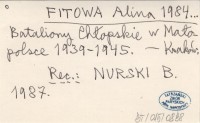 FITOWA Alina 1984...
Bataliony Chłopskie w Mało
polsce 1939-1945. – Kraków.
Rec.: NURSKI B.
1987.